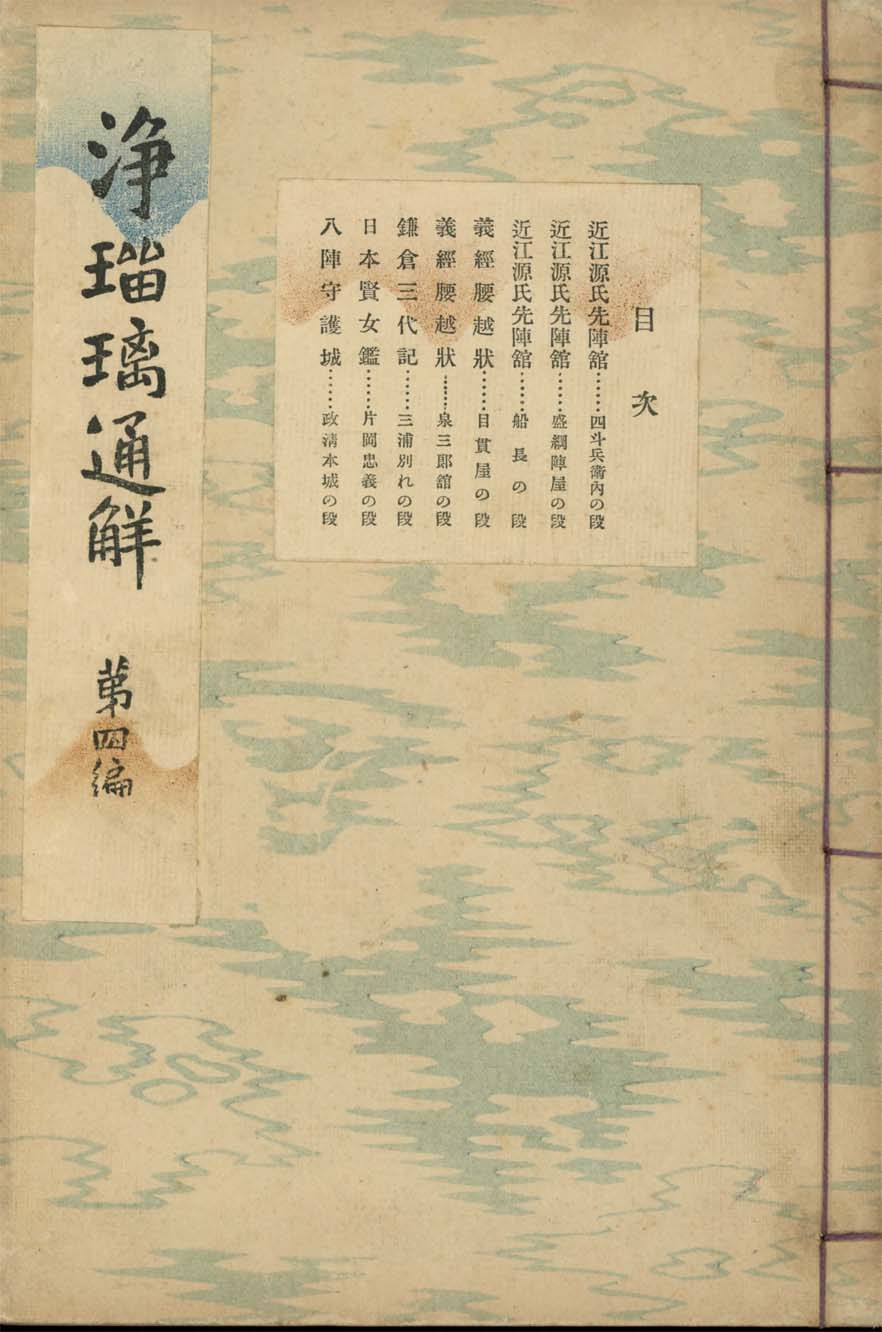 目次
近江源氏先陣舘……四斗兵衞內の段
近江源氏先陣舘……盛綱陣屋の段
近江源氏先陣舘……船長の段
義經腰越狀……目貫屋の段
義經腰越狀……泉三郎舘の段
鎌倉三代記……三浦別れの段
日本賢女鑑……片岡忠義の段
八陣守護城……政淸本城の段
浄瑠璃通解 第四編